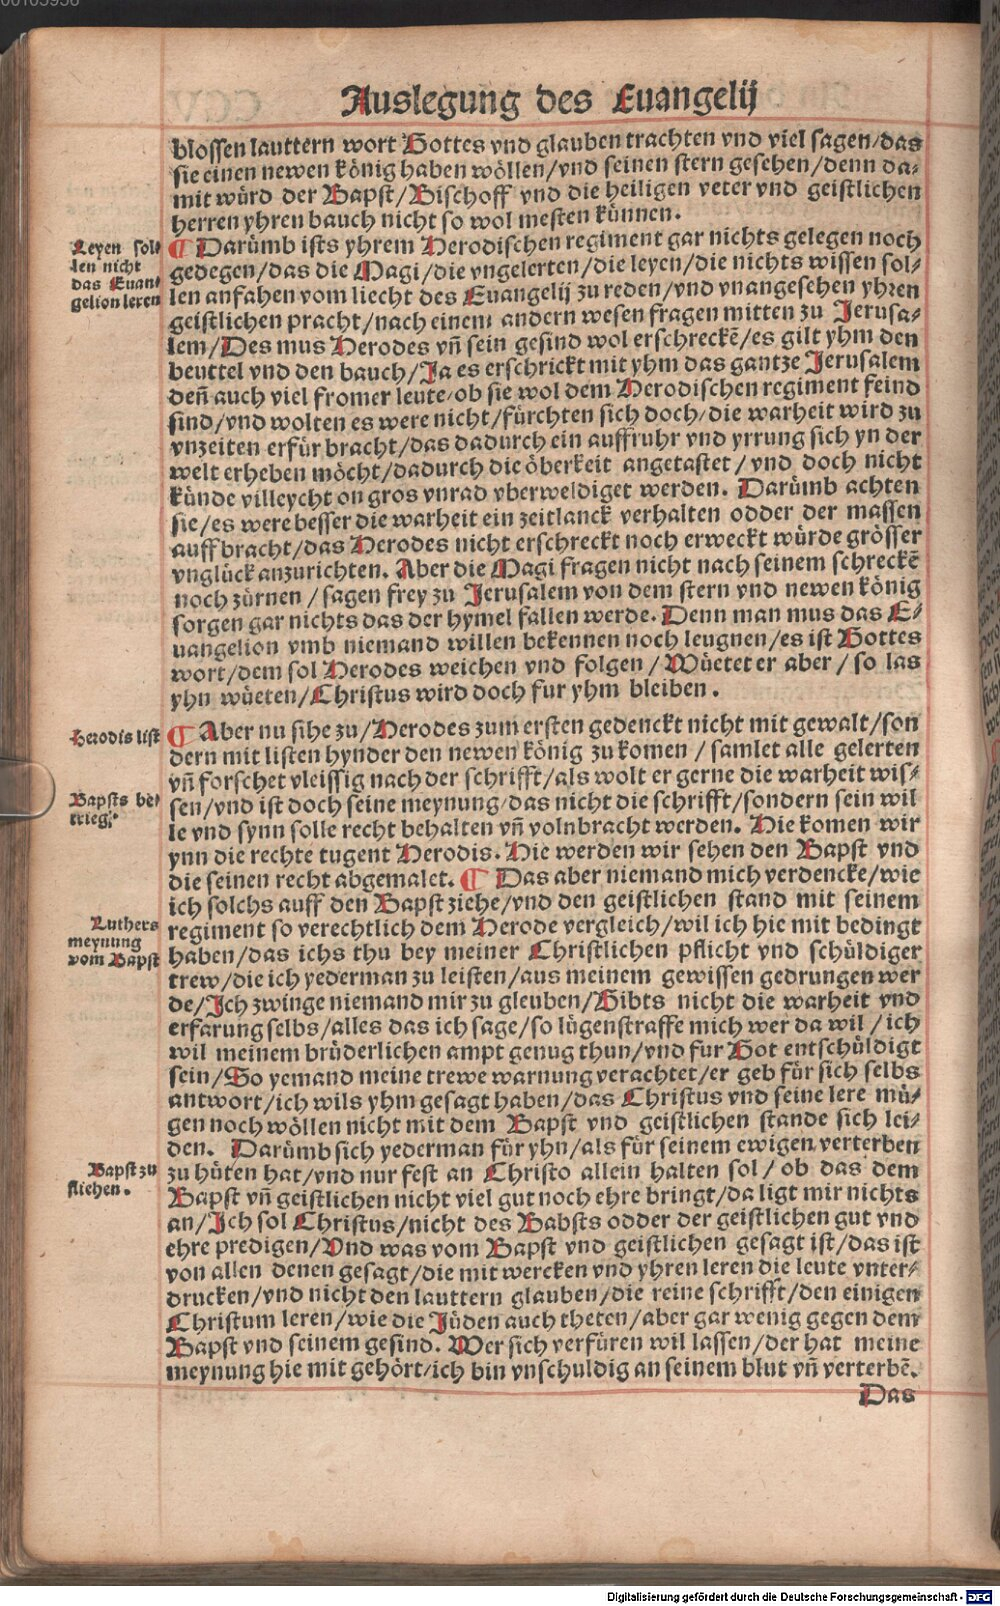 Auslegung des Euangelij
blossen lauttern wort Gottes vnd glauben trachten vnd viel sagen/das
sie einen newen könig haben wöllen/vnd seinen stern gesehen/denn da-
mit würd der Bapst/Bischoff vnd die heiligen veter vnd geistlichen
herren yhren bauch nicht so wol mesten künnen.
Leyen sol-
len nicht
das Euan-
gelion leren
¶ Darümb ists yhrem Herodischen regiment gar nichts gelegen noch
gedegen/das die Magi/die vngelerten/die leyen/die nichts wissen sol-
len anfahen vom liecht des Euangelij zu reden/vnd vnangesehen yhren
geistlichen pracht/nach einem andern wesen fragen mitten zu Jerusa-
lem/Des mus Herodes vn̄ sein gesind wol erschreckē/es gilt yhm den
beuttel vnd den bauch/Ja es erschrickt mit yhm das gantze Jerusalem
den̄ auch viel fromer leute/ob sie wol dem Herodischen regiment feind
sind/vnd wolten es were nicht/fürchten sich doch/die warheit wird zu
vnzeiten erfür bracht/das dadurch ein auffruhr vnd yrrung sich yn der
welt erheben möcht/dadurch die öberkeit angetastet/vnd doch nicht
künde villeycht on gros vnrad vberweldiget werden. Darümb achten
sie/es were besser die warheit ein zeitlanck verhalten odder der massen
auff bracht/das Herodes nicht erschreckt noch erweckt würde grösser
vnglück anzurichten. Aber die Magi fragen nicht nach seinem schreckē
noch zürnen/sagen frey zu Jerusalem von dem stern vnd newen könig
sorgen gar nichts das der hymel fallen werde. Denn man mus das E-
uangelion vmb niemand willen bekennen noch leugnen/es ist Gottes
wort/dem sol Herodes weichen vnd folgen/Wüetet er aber/so las
yhn wüeten/Christus wird doch fur yhm bleiben.
Herodis list
¶ Aber nu sihe zu/Herodes zum ersten gedenckt nicht mit gewalt/son
dern mit listen hynder den newen könig zu komen/samlet alle gelerten
vn̄ forschet vleissig nach der schrifft/als wolt er gerne die warheit wis-
Bapsts be-
trieg.
sen/vnd ist doch seine meynung/das nicht die schrifft/sondern sein wil
le vnd synn solle recht behalten vn̄ volnbracht werden. Hie komen wir
ynn die rechte tugent Herodis. Hie werden wir sehen den Bapst vnd
die seinen recht abgemalet. ¶ Das aber niemand mich verdencke/wie
ich solchs auff den Bapst ziehe/vnd den geistlichen stand mit seinem
Luthers
meynung
vom Bapst
regiment so verechtlich dem Herode vergleich/wil ich hie mit bedingt
haben/das ichs thu bey meiner Christlichen pflicht vnd schüldiger
trew/die ich yederman zu leisten/aus meinem gewissen gedrungen wer
de/Ich zwinge niemand mir zu gleuben/Gibts nicht die warheit vnd
erfarung selbs/alles das ich sage/so lügenstraffe mich wer da wil/ich
wil meinem brüderlichen ampt genug thun/vnd fur Got entschüldigt
sein/So yemand meine trewe warnung verachtet/er geb für sich selbs
antwort/ich wils yhm gesagt haben/das Christus vnd seine lere mü-
gen noch wöllen nicht mit dem Bapst vnd geistlichen stande sich lei-
den. Darümb sich yederman für yhn/als für seinem ewigen verterben
Bapst zu
fliehen.
zu hüten hat/vnd nur fest an Christo allein halten sol/ob das dem
Bapst vn̄ geistlichen nicht viel gut noch ehre bringt/da ligt mir nichts
an/Ich sol Christus/nicht des Babsts odder der geistlichen gut vnd
ehre predigen/Vnd was vom Bapst vnd geistlichen gesagt ist/das ist
von allen denen gesagt/die mit wercken vnd yhren leren die leute vnter-
drucken/vnd nicht den lauttern glauben/die reine schrifft/den einigen
Christum leren/wie die Jüden auch theten/aber gar wenig gegen dem
Bapst vnd seinem gesind. Wer sich verfüren wil lassen/der hat meine
meynung hie mit gehört/ich bin vnschuldig an seinem blut vn̄ verterbē.
Das
Digitalisierung gefördert durch die Deutsche Forschungsgemeinschaft - DFG